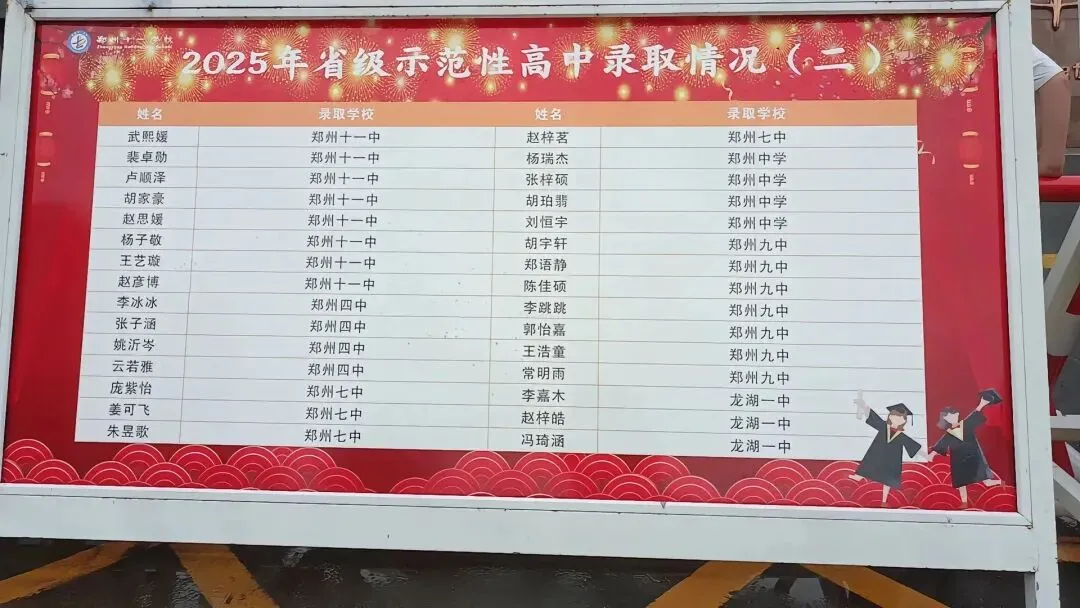 郑州十一学校
2025年省级示范性高中录取情况（二）
姓名 录取学校 姓名 录取学校
武熙媛 郑州十一中 赵梓茗 郑州七中
裴卓勋 郑州十一中 杨瑞杰 郑州中学
卢顺泽 郑州十一中 张梓硕 郑州中学
胡家豪 郑州十一中 胡珀翡 郑州中学
赵思媛 郑州十一中 刘恒宇 郑州中学
杨子敬 郑州十一中 胡字轩 郑州九中
王艺璇 郑州十一中 郑语静 郑州九中
赵彦博 郑州十一中 陈佳硕 郑州九中
李冰冰 郑州四中 李跳跳 郑州九中
张子涵 郑州四中 郭怡嘉 郑州九中
姚沂岑 郑州四中 王浩童 郑州九中
云若雅 郑州四中 常明雨 郑州九中
庞紫怡 郑州七中 李嘉木 龙湖一中
姜可飞 郑州七中 赵梓皓 龙湖一中
朱昱歌 郑州七中 冯琦涵 龙湖一中